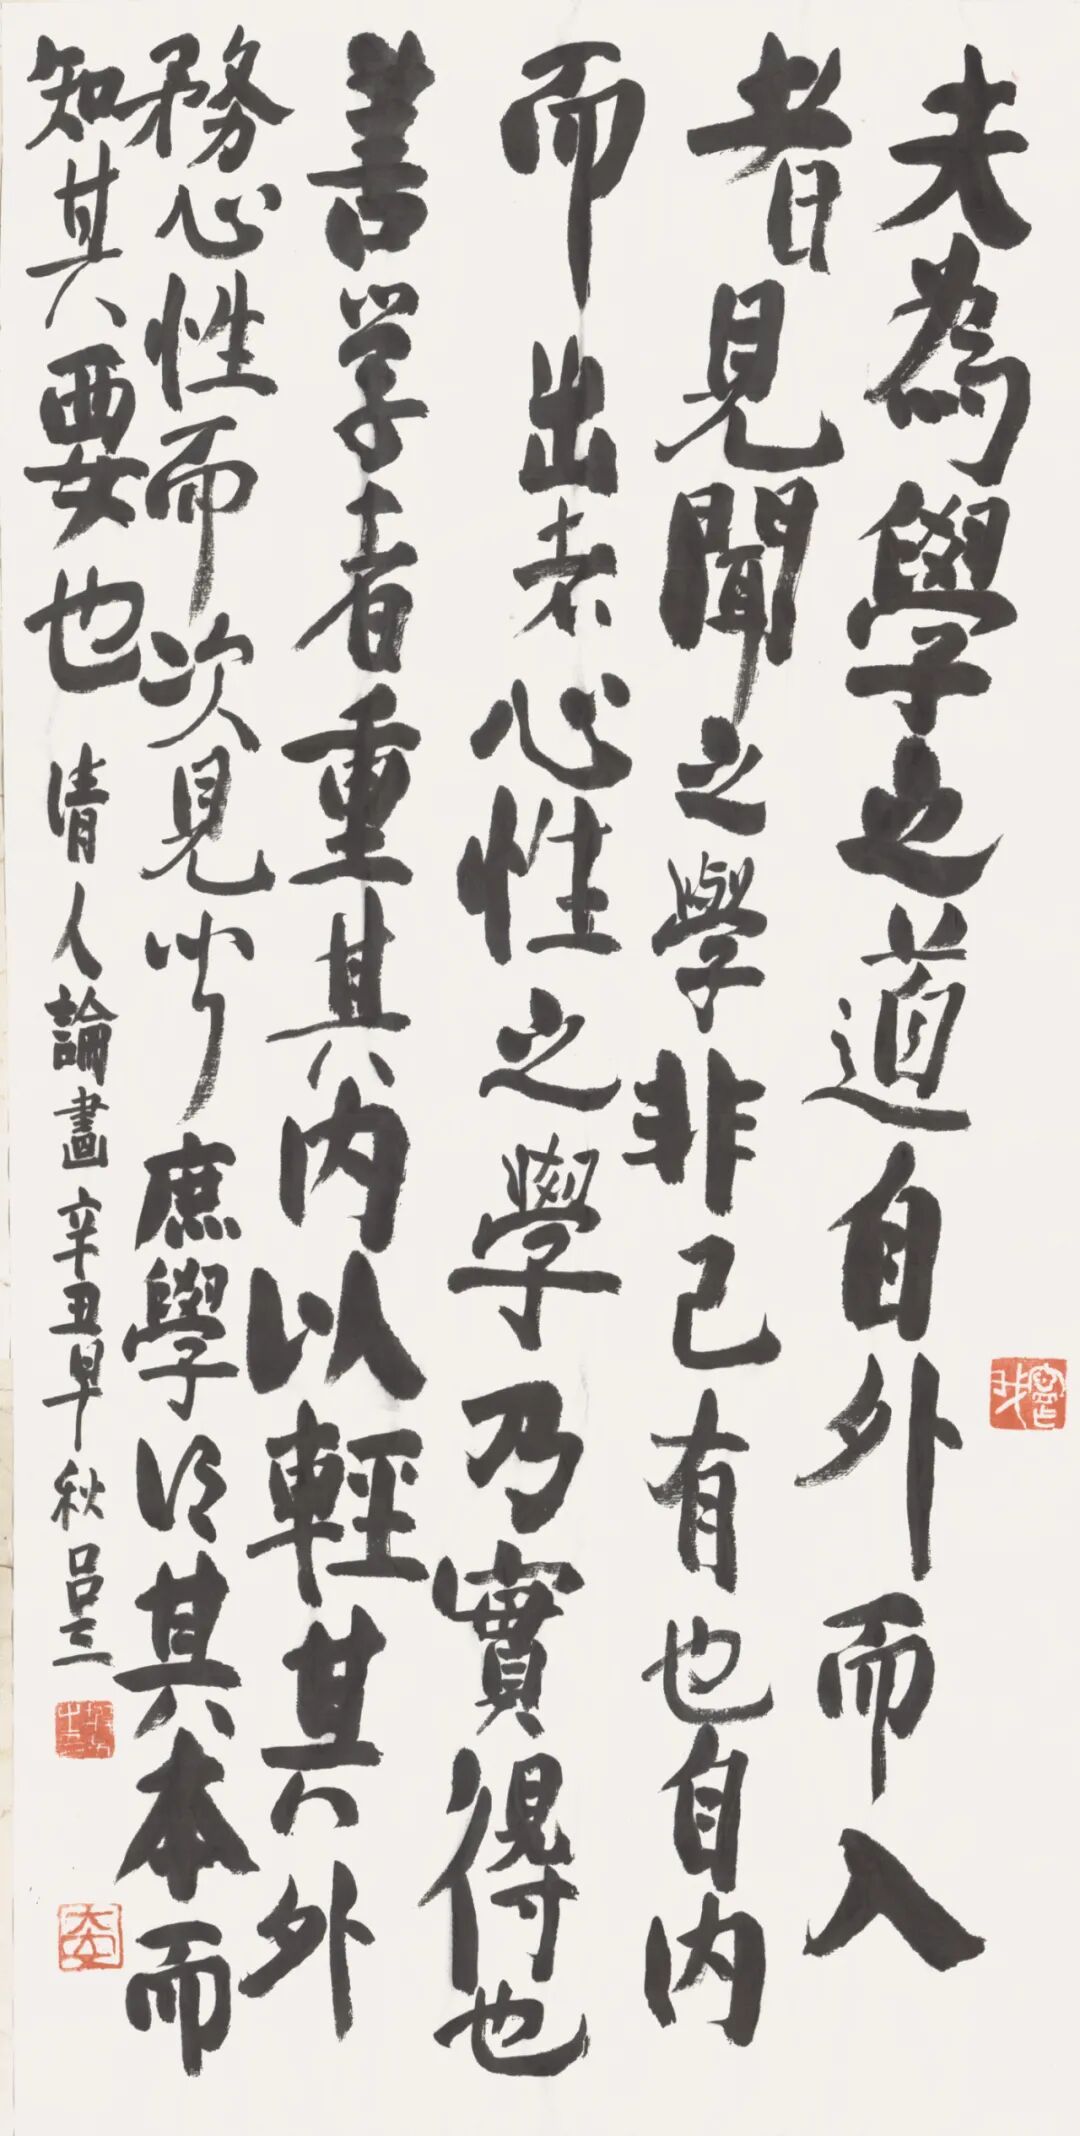 夫為學之道自外而入
者見聞之學非己有也自內
而出者心性之學乃實得也
善学者重其内以輕其外
務心性而次見闻庶學得其本而
知其要也 清人論畫辛丑早秋吕三